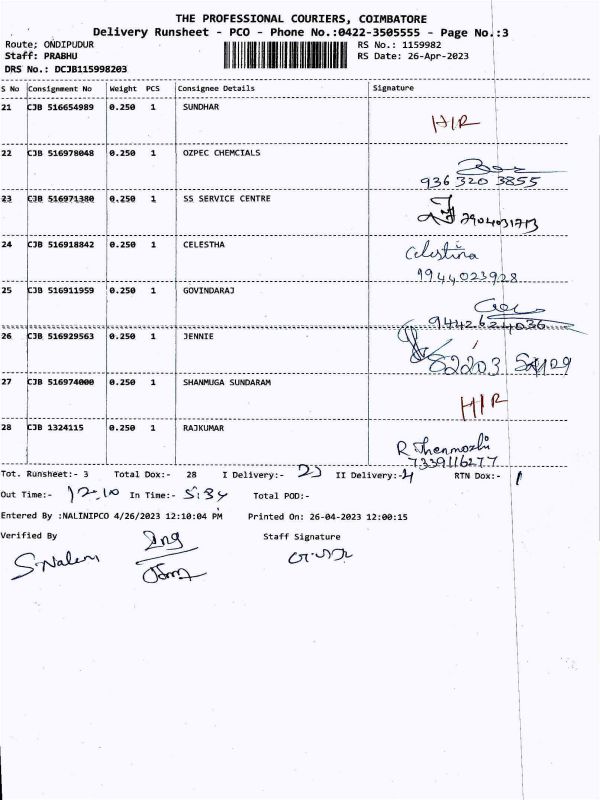 THE PROFESSIONAL COURIERS, COIMBATORE
Delivery Runsheet - PCO - Phone No.:0422-3505555 - Page No.:3
Route; ONDIPUDUR RS No.: 1159982
Staff: PRABHU RS Date: 26-Apr-2023
DRS No.: DCJB115998203
S No Consignment No Weight PCS Consignee Details Signature
21 CJB 516654989 0.250 1 SUNDHAR
HIR
22 CJB 516978048 0.250 1 OZPEC CHEMCIALS
936 320 3855
23 CJB 516971380 0.250 1 SS SERVICE CENTRE
24 CJB 516918842 0.250 1 CELESTHA
Celestina
9944023928
25 CJB 516911959 0.250 1 GOVINDARAJ
9442624036
26 CJB 516929563 0.250 1 JENNIE
27 CJB 516974000 0.250 1 SHANMUGA SUNDARAM
HIR
28 CJB 1324115 0.250 1 RAJKUMAR
R Thenmozhi
7339116277
Tot. Runsheet:- 3 Total Dox:- 28 I Delivery:- II Delivery:- RTN Dox:- 1
Out Time:- 12.10 In Time:- 5:34 Total POD:-
Entered By :NALINIPCO 4/26/2023 12:10:04 PM Printed On: 26-04-2023 12:00:15
Verified By Staff Signature